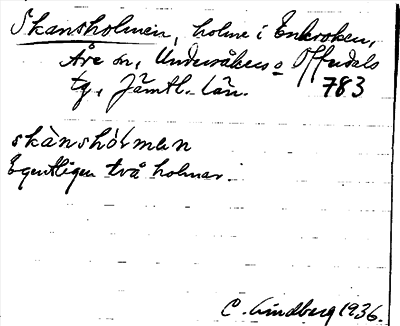 Skansholmen, holme i Enkroken,
Åre sn, Undersåkers o Offerdals
tg, Jämtl. län. 783
skànshólmen
Egentligen två holmar.
C. Lindberg 1936.